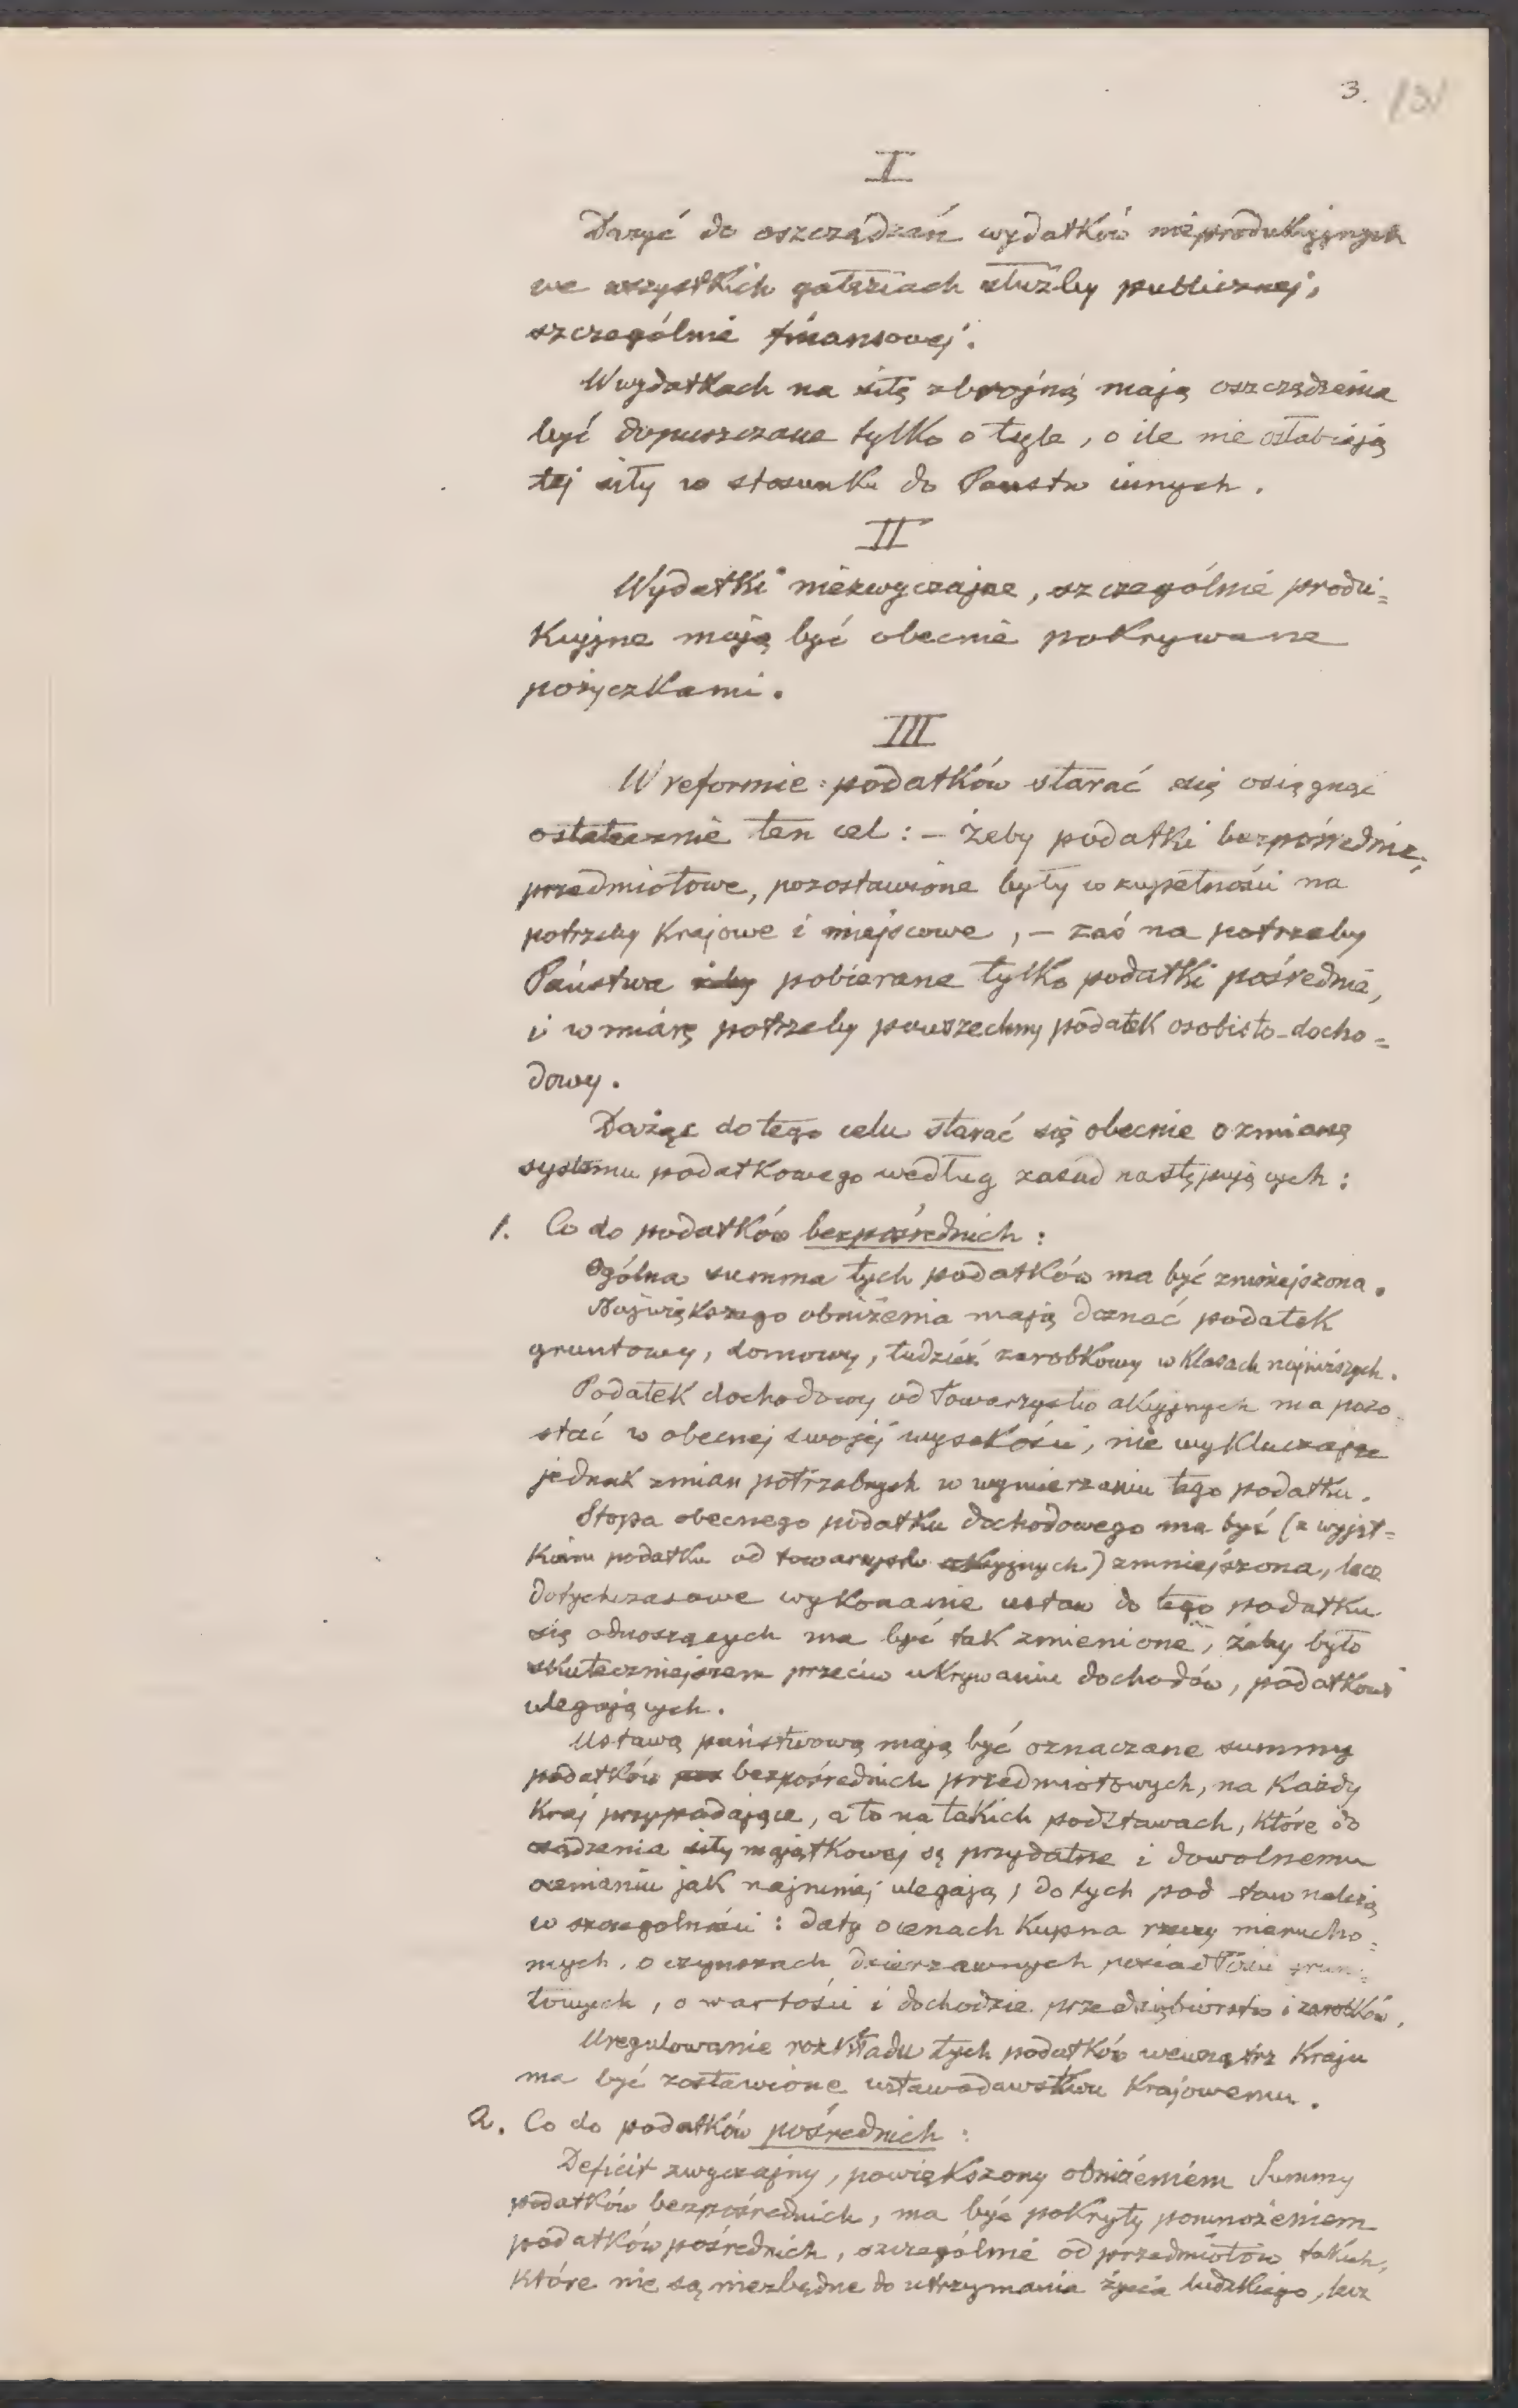 3. /3/
I
Dążyć do oszczędzań wydatków nieprodukcyjnych
we wszystkich gałęziach służby publicznej,
szczególnie finansowej.
W wydatkach na siłę zbrojną mają oszczędzenia
być dopuszczane tylko o tyle, o ile nie osłabiają
tej siły w stosunku do Państw innych.
II
Wydatki niezwyczajne, szczególnie produ=
kcyjne mają być obecnie pokrywane
pożyczkami.
III
W reformie podatków starać się osięgnąć
ostatecznie ten cel: – żeby podatki bezpośrednie,
przedmiotowe, pozostawione były w zupełności na
potrzeby Krajowe i miejscowe, – zaś na potrzeby
Państwa pobierane tylko podatki pośrednie,
i w miarę potrzeby powszechny podatek osobisto-docho=
dowy.
Dążąc do tego celu starać się obecnie o zmianę
systemu podatkowego według zasad następujących:
1. Co do podatków bezpośrednich:
Ogólna summa tych podatków ma być zmniejszona.
Największego obniżenia mają doznać podatek
gruntowy, domowy, tudzież zarobkowy w klasach najniższych.
Podatek dochodowy od towarzystw akcyjnych ma pozo
stać w obecnej swojej wysokości, nie wykluczając
jednak zmian potrzebnych w wymierzaniu tego podatku.
Stopa obecnego podatku dochodowego ma być (z wyjąt=
kiem podatku od towarzystw akcyjnych) zmniejszona, lecz
dotychczasowe wykonanie ustaw do tego podatku
się odnoszących ma być tak zmienione, żeby było
skuteczniejszem przeciw ukrywaniu dochodów, podatkowi
ulegających.
Ustawą państwową mają być oznaczane summy
podatków bezpośrednich przedmiotowych, na każdy
Kraj przypadające, a to na takich podstawach, które do
osądzenia siły majątkowej są przydatne i dowolnemu
ocenianiu jak najmniej ulegają; do tych pod staw należą
w szczególności: daty o cenach kupna rzeczy nierucho=
mych, o czynszach dzierżawnych posiadłości grun=
towych, o wartości i dochodzie przedsiębiorstw i zarobków.
Uregulowanie rozkładu tych podatków wewnątrz Kraju
ma być zostawione ustawodawstwu Krajowemu.
2. Co do podatków pośrednich:
Deficit zwyczajny, powiększony obniżeniem Summy
podatków bezpośrednich, ma być pokryty pomnożeniem
podatków pośrednich, szczególnie od przedmiotów takich,
które nie są niezbędne do utrzymania życia ludzkiego, lecz